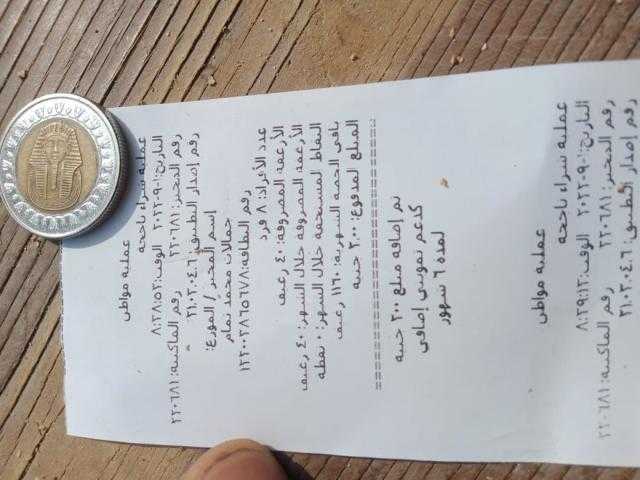 عملية مواطن
عملية شراء ناجحة
التاريخ:٠١-٠٩-٢٠٢٢ الوقت:٨:٢٨:٥٢
رقم المخبز: ٢٢٠٦٨١ رقم الماكينة: ٢٢٠٦٨١
رقم إصدار التطبيق: ٢١.٠٢.٠٤.٦
إسم المخبز / الموزع:
جمالات محمد تمام
رقم البطاقة:
عدد الأفراد: ٨ فرد
الأرغفة المصروفة: ٤٠ رغيف
الأرغفة المصروفة خلال الشهر: ٤٠ رغيف
النقاط المستحقة خلال الشهر: ٠ نقطة
باقى الحصة الشهرية: ١١٦٠ رغيف
المبلغ المدفوع: ٢.٠٠ جنيه
================
تم إضافة مبلغ ٣٠٠ جنيه
كدعم تموينى إضافى
لمدة ٦ شهور
عملية مواطن
عملية شراء ناجحة
التاريخ:٠١-٠٩-٢٠٢٢ الوقت:٨:٢٩:١٢
رقم المخبز: ٢٢٠٦٨١ رقم الماكينة: ٢٢٠٦٨١
رقم إصدار التطبيق: ٢١.٠٢.٠٤.٦